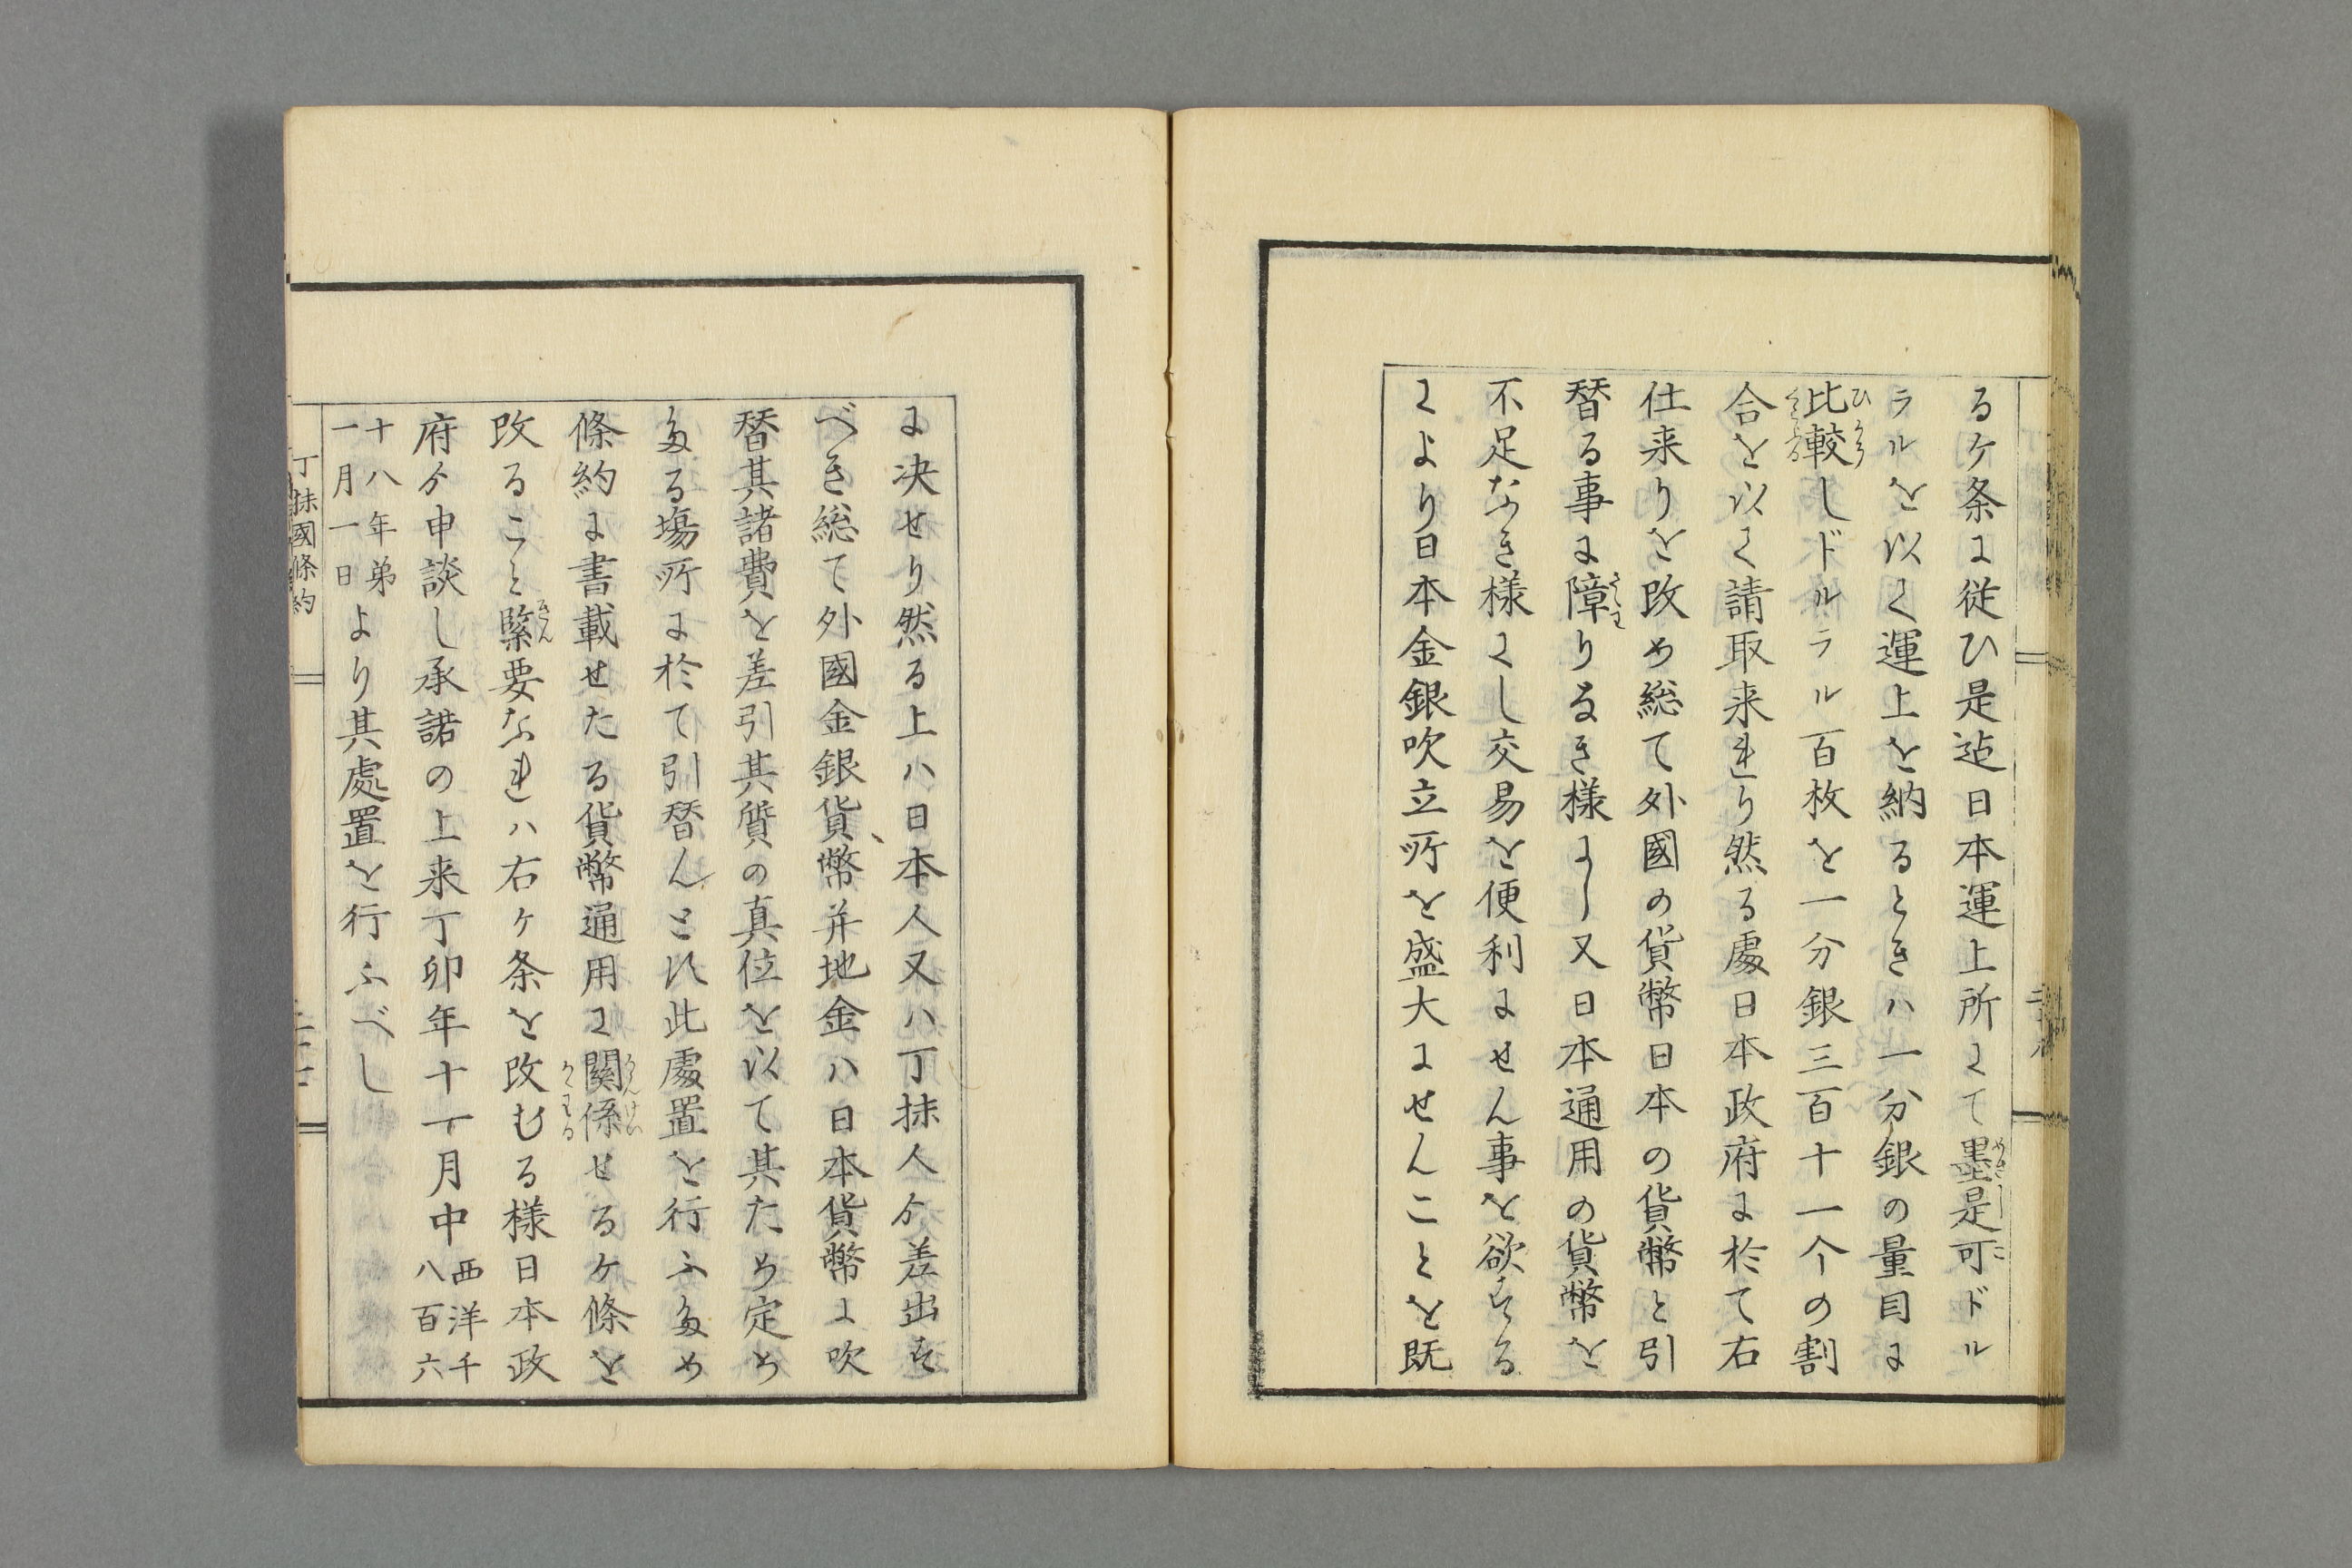 るケ条に従ひ是迠日本運上所にて墨是可ドル
ラルを以て運上を納るときハ一分銀の量目に
比較しドルラル百枚を一分銀三百十一个の割
合を以て請取来れり然る處日本政府に於て右
仕来りを改め総て外國の貨幣日本の貨幣と引
替る事に障りなき様にし又日本通用の貨幣を
不足なき様にし交易を便利にせん事を欲する
により日本金銀吹立所を盛大にせんことを既
に决せり然る上ハ日本人又ハ丁抹人ゟ差出す
べき総て外國金銀貨幣并地金ハ日本貨幣に吹
替其諸費を差引其質の真位を以て其ため定め
たる塲所に於て引替んとす此處置を行ふため
條約に書載せたる貨幣通用に關係せるケ條を
改ること緊要なれハ右ケ条を改むる様日本政
府ゟ申談し承諾の上来丁卯年十一月中西洋千八百六
十八年弟一月一日より其處置を行ふべし
丁抹國條約